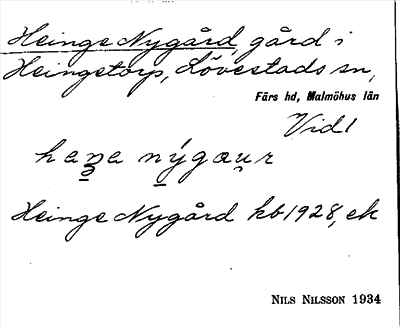 Heinge Nygård, gård i
Heingetorp, Lövestads sn,
Färs hd, Malmöhus län
Vidl
Heinge Nygård kb 1928, ek
NILS NILSSON 1934